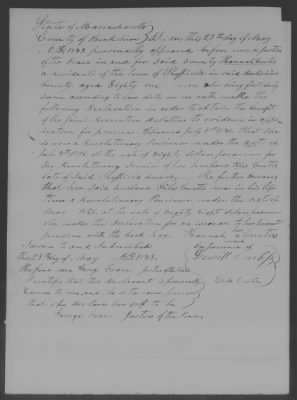 State of Massachusetts
County of Berkshire } SS. on this 23rd day of May
A.D. 1843, personally appeared before me a justice
of the Peace in and for said County Hannah Curtis
a resident of the town of Sheffield in said Berkshire
County, aged Eighty one years who being first duly
sworn according to law doth on her oath make the
following declaration in order to obtain the benefit
of the Joint Resolution relative to evidence in appli-
cations for pensions. Approved July 1st 18 That she
is now a Revolutionary Pensioner under the act of
July 4th 1836, at the rate of Eighty dollars per annum for
the Revolutionary Service of her husband Curtis
late of said Sheffield deceased. She further declares
that her said husband Curtis was in his life
time a Revolutionary Pensioner under the act of
at the rate of Eighty Eight dollars per annum
she makes this declaration for an increase of her present
pension with the back
Sworn to and Subscribed Hannah Curtis
this 23 day of May A.D. 1843, in presence of
Before me George justice of the Peace
I certify that this declarant is personally
known to me, and the same person
that she declares herself to be
George Justice of the Peace,